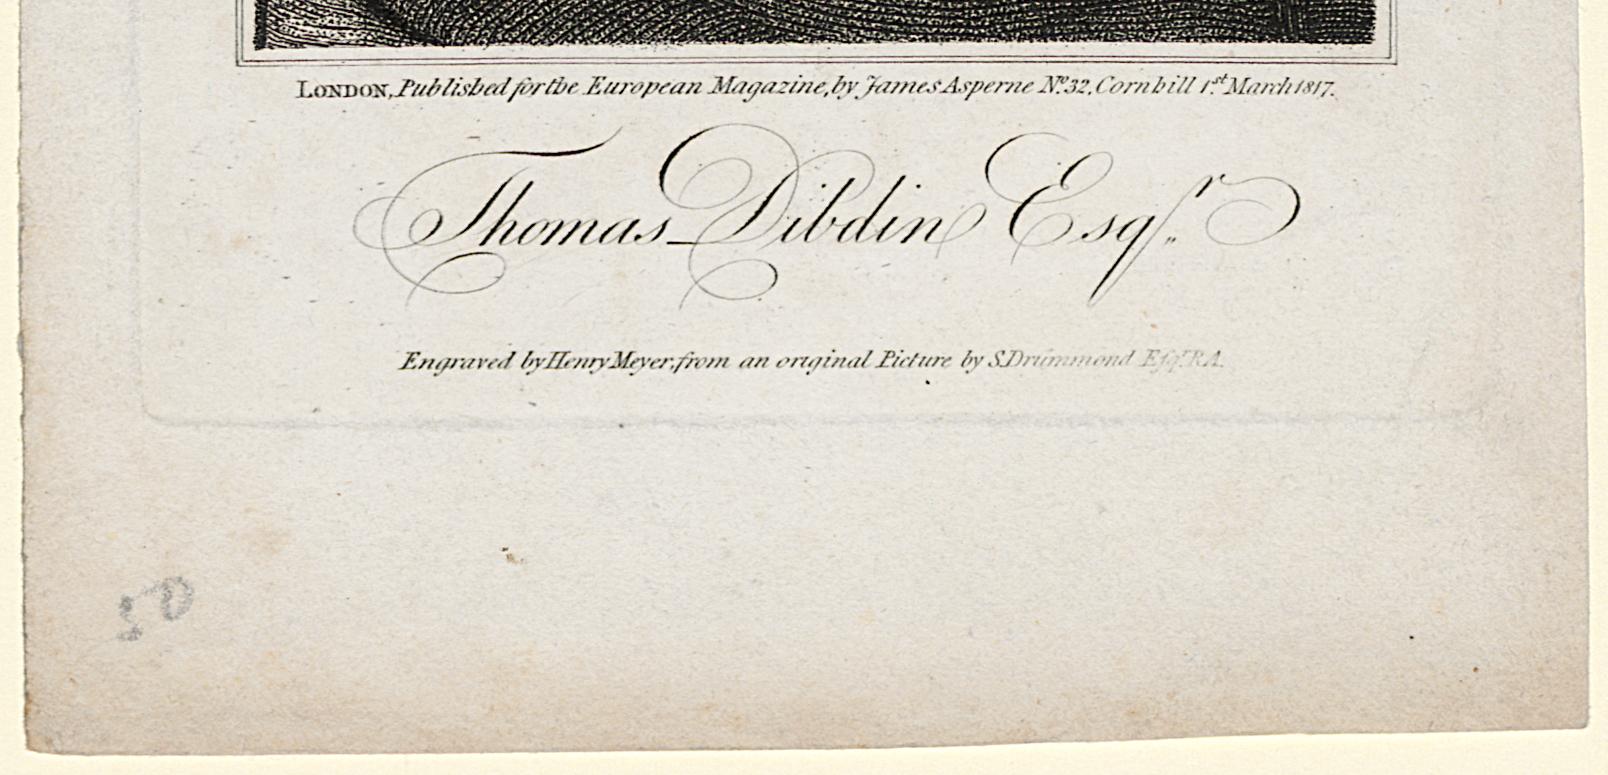 LONDON, Published for the European Magazine, by James Asperne No. 32, Cornhill 1st. March 1817.
Thomas Dibdin Esqr.
Engraved by Henry Meyer, from an original Picture by S. Drummond Esqr. R.A.